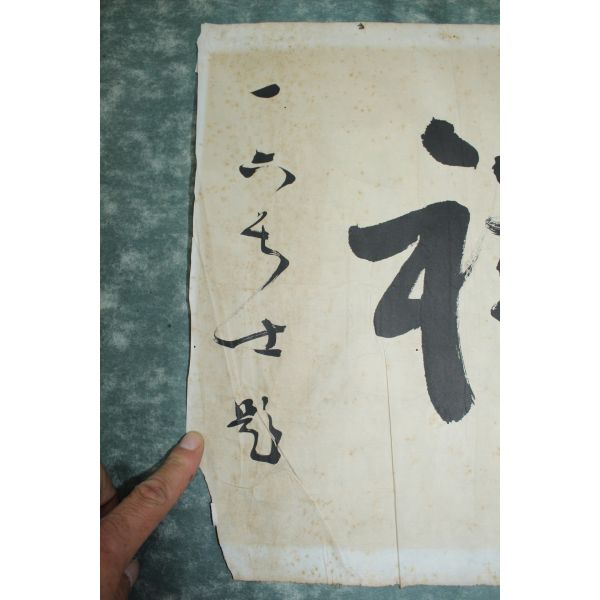 一六居士題